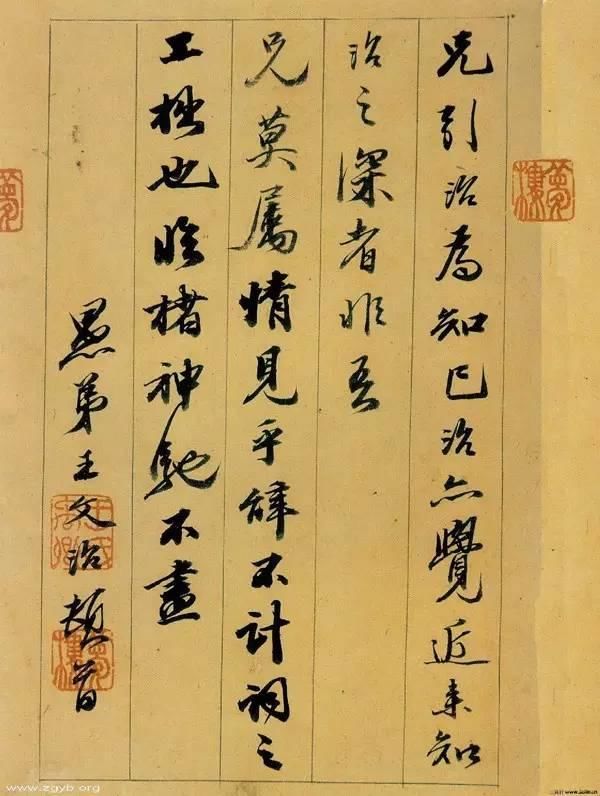 兄引治為知己治亦覺近来知
治之深者非吾
兄莫屬情見乎辭不計詞之
工拙也臨楮神馳不盡
愚弟王文治頓首
夢樓
www.zgyb.org